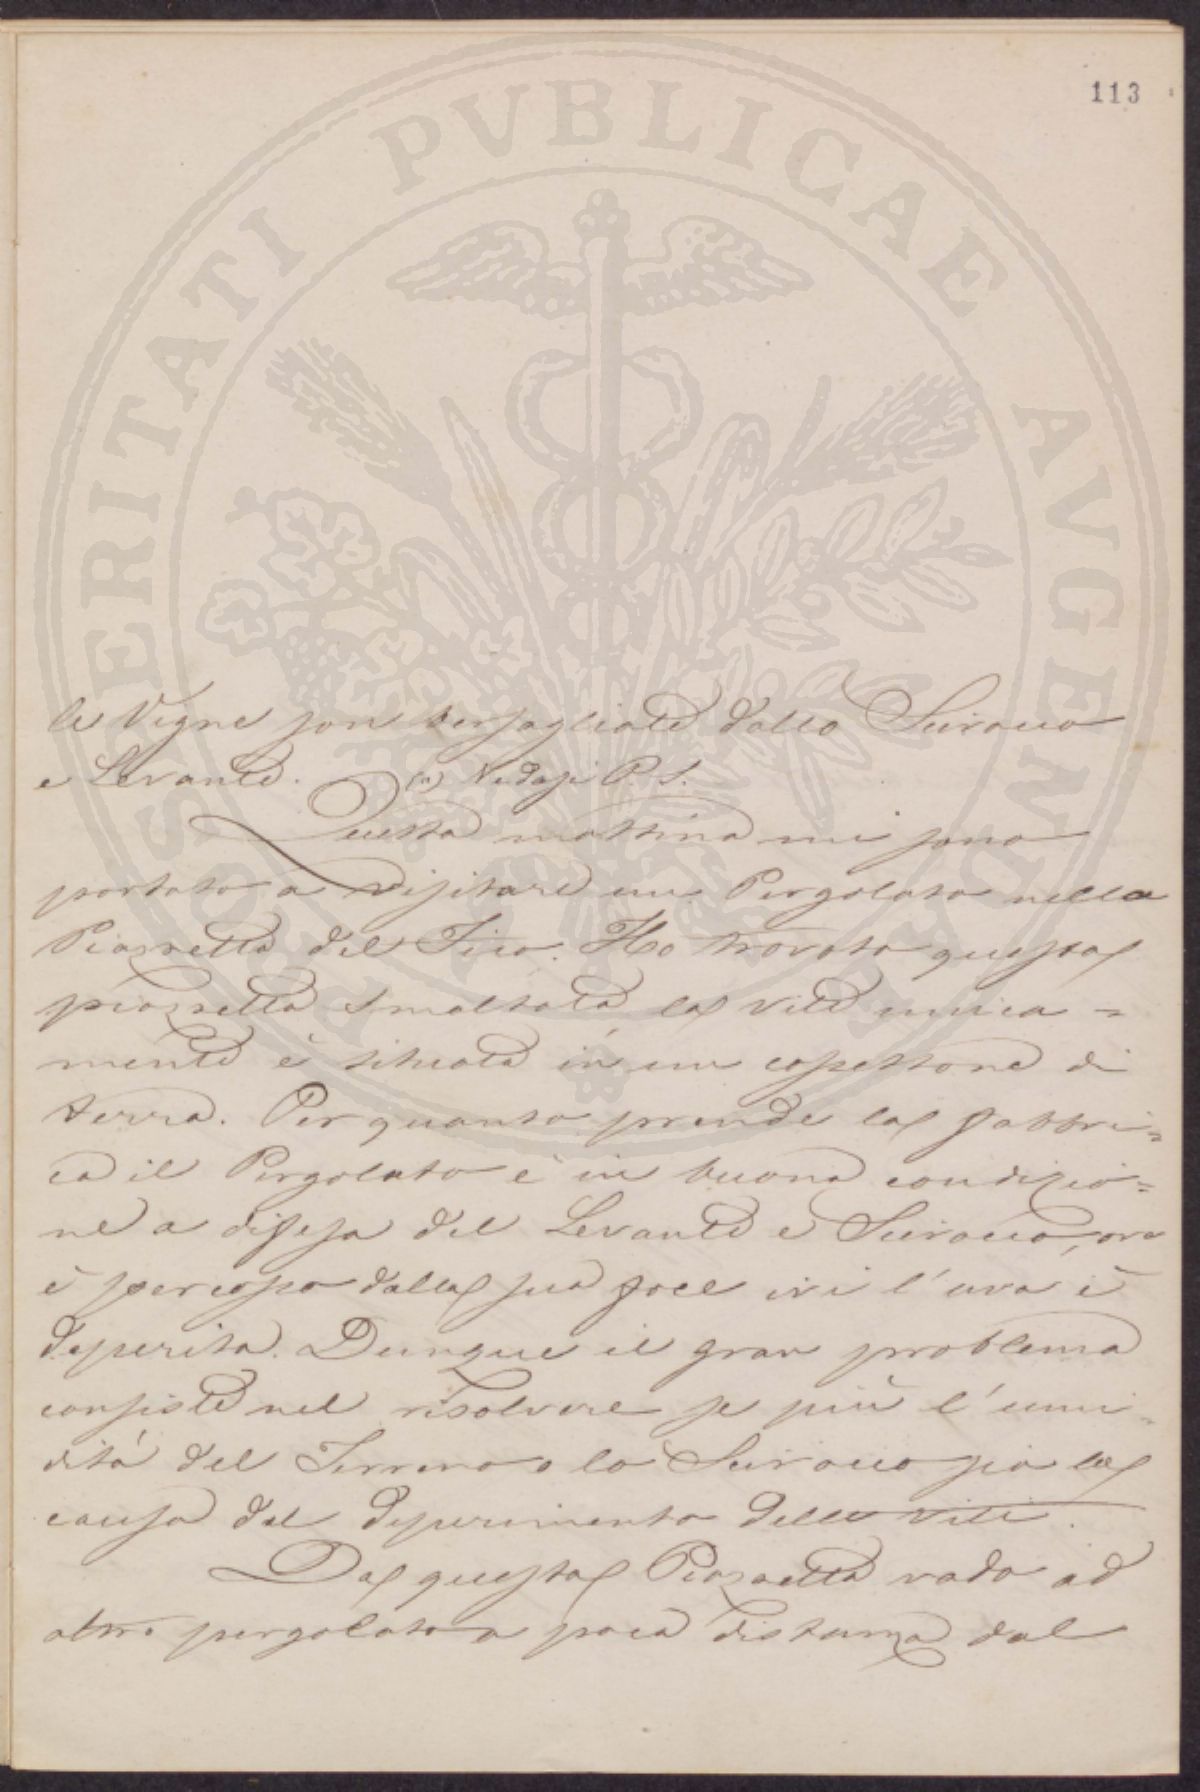 113
PROSPERITATI PVBLICAE AVGENDAE
le Vigne son bersagliate dallo Scirocco
e Levante. (a) Vedasi P. S.
Questa mattina mi sono
portato a visitare un Pergolato nella
Piazzetta del Fico. Ho trovato questa
piazzetta smaltata la vite unica=
mente è situata in un caspettone di
terra. Per quanto prende la fabbri=
ca il Pergolato è in buona condizio=
ne a difesa del Levante e Scirocco, ove
è percosso dalla sua foce ivi l'uva è
deperita. Dunque il gran problema
consiste nel risolvere se più l'umi=
dità del Terreno o lo Scirocco sia la
causa del deperimento delle viti.
Da questa Piazzetta vado ad
altro pergolato a poca distanza dal